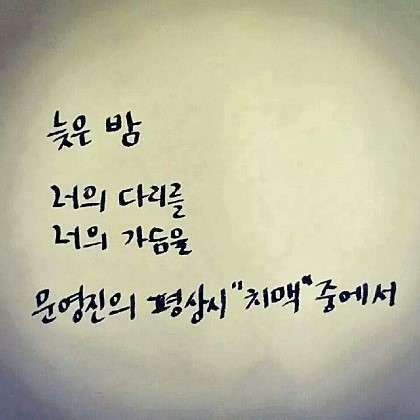 늦은 밤
너의 다리를
너의 가듬을
문영진의 평상시 "치맥" 중에서